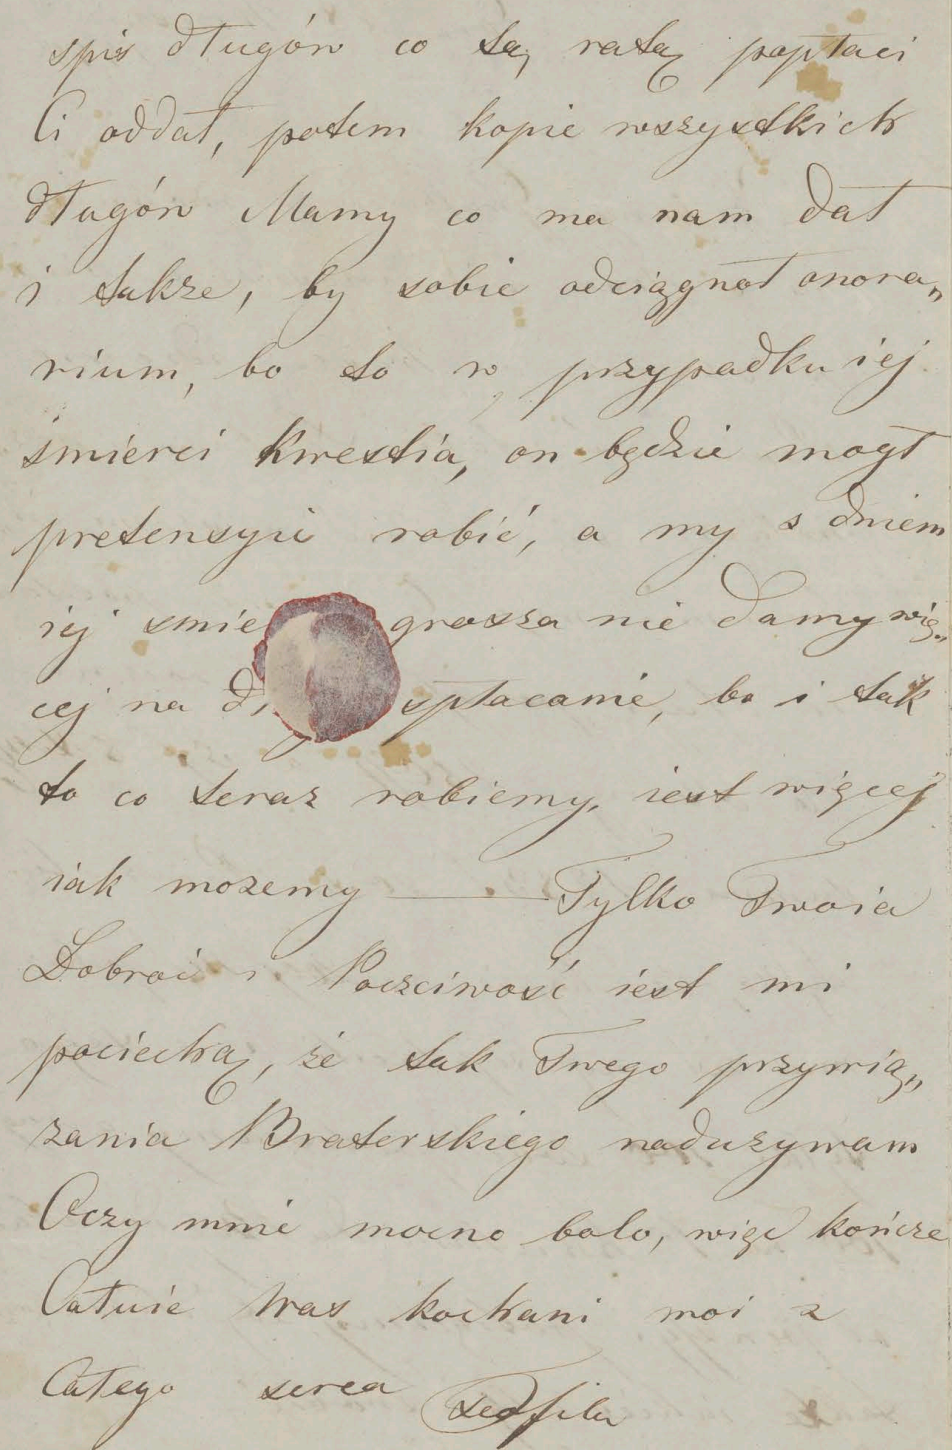 spis długów co tą ratą popłaci
Ci oddał, potem kopie wszystkich
długów Mamy co ma nam dał
i także, by sobie odciągnoł onora„
rium, bo to w przypadku iej
śmierci kwestia, on będzie mogł
pretensyie robić, a my s dniem
iej smie grosza nie damy wię„
cej na d spłacanie, bo i tak
to co teraz robiemy, iest więcej
iak mozemy — Tylko Twoia
Dobroć i Poczciwość iest mi
pociechą, że tak Twego przywią„
zania Braterskiego naduzywam
Oczy mnie mocno bolo, więc kończe
Całuie Was kochani moi z
Całego serca Teofila